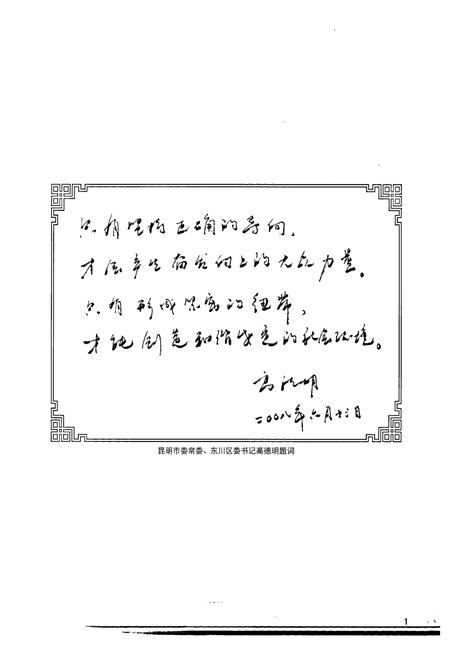 只有坚持正确的导向,
才会产生奋发向上的大众力量。
只有形成紧密的纽带,
才能创造和谐安定的社会环境。
高德明
二〇〇八年六月十三日
昆明市委常委、东川区委书记高德明题词
1